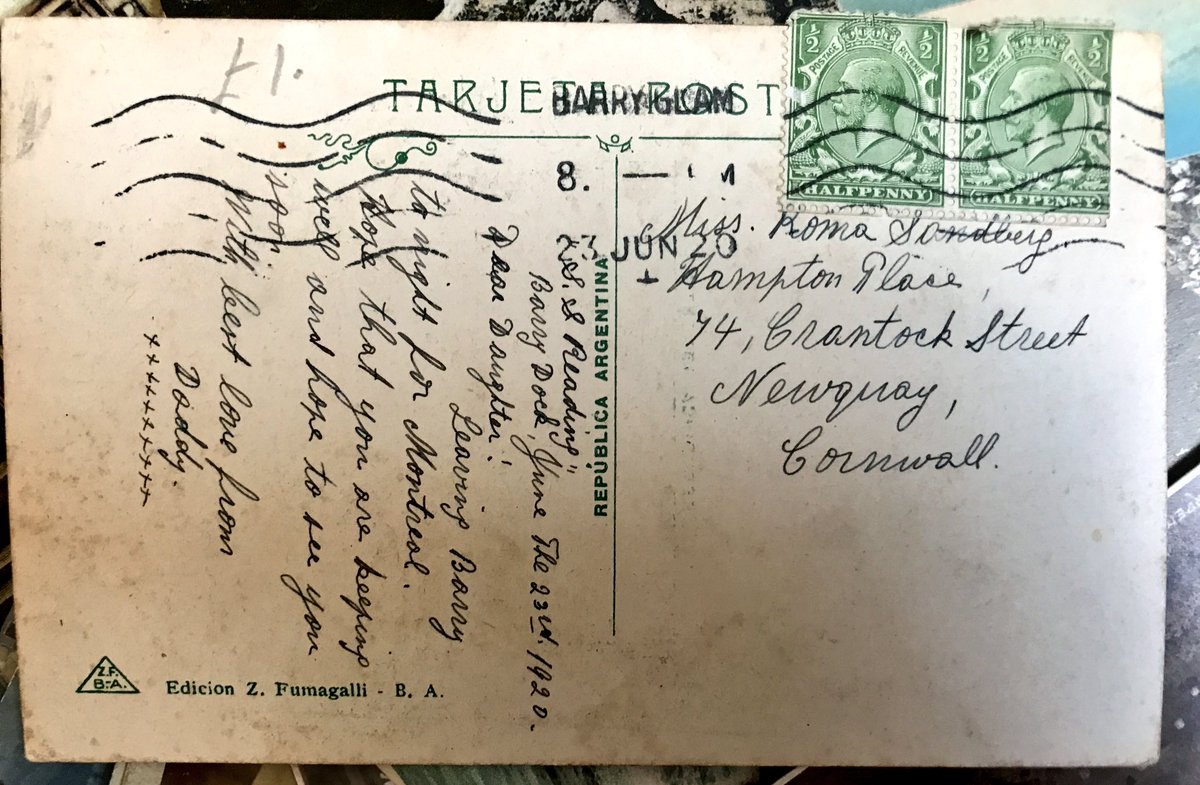 £1.
TARJETA POST
BARRY·GLAM
8. —
23 JUN 20
½ ½
POSTAGE REVENUE
HALFPENNY
½ ½
POSTAGE REVENUE
HALFPENNY
REPÚBLICA ARGENTINA
S. S Reading"
Barry Dock, June The 23rd. 1920.
Dear Daughter!
Leaving Barry
to night for Montreal.
Hope that you are keeping
well and hope to see you
soon
With best love from
Daddy.
xxxxxxxxx
Miss. Roma Sandberg
Hampton Place,
74, Crantock Street
Newquay,
Cornwall.
Z.F.
B.-A.
Edicion Z. Fumagalli - B. A.